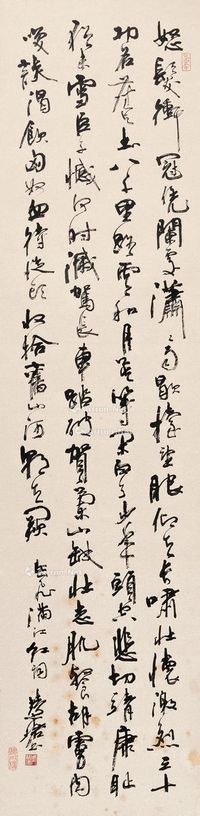 怒髮衝冠凭闌處瀟々雨歇擡望眼仰天長嘯壯懷激烈三十
功名塵與土八千里路雲和月莫等閑白了少年頭空悲切靖康恥
猶未雪臣子憾何時滅駕長車踏破賀蘭山缺壯志飢餐胡虜肉
笑談渴飲匈奴血待從頭收拾舊山河朝天闕 岳飛滿江紅詞